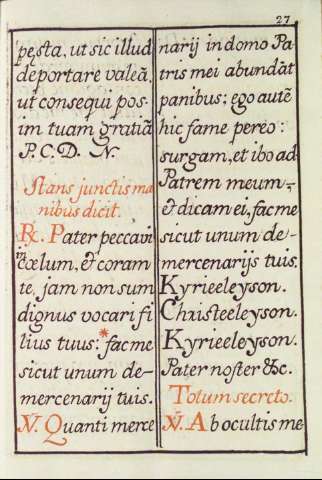 27
pesta, ut sic illud
deportare valeā,
ut consequi pos-
im tuam gratiā
P. C. D. N.
Stans junctis ma
nibus dicit.
℟. Pater peccavi
in cœlum, & coram
te, jam non sum
dignus vocari fi
lius tuus: * fac me
sicut unum de-
mercenarij tuis.
℣. Quanti merce
narij in domo Pa
tris mei abundāt
panibus; ego autē
hic fame pereo:
surgam, et ibo ad
Patrem meum,
& dicam ei, fac me
sicut unum de-
mercenarijs tuis.
Kyrieeleyson.
Christeeleyson.
Kyrieeleyson.
Pater noster &c.
Totum secreto.
℣. Ab ocultis me